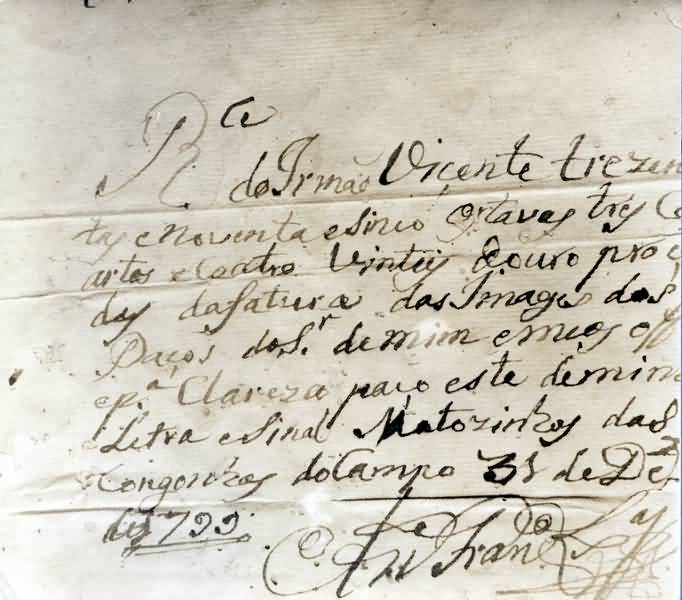 R.ce
do Irmão Vicente trezen
tas e noventa e sinco Oytavas tres Co
artos e Coatro Vinteis douro proce
das dafatura das Images dos
Paços do S.r de mim e meos off
e p.a Clareza paço este de min
Letra e Sinal Matozinhos das
Congonhas do Campo 31 de Dez
de 1799
Ant.o Fran.co Lx.a